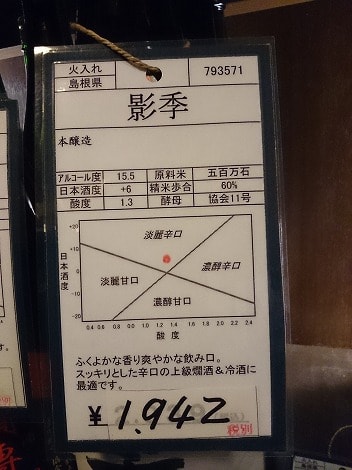 火入れ 793571
島根県
影季
本醸造
アルコール度 15.5 原料米 五百万石
日本酒度 +6 精米歩合 60%
酸度 1.3 酵母 協会11号
+20
+10
0
-10
-20
日本酒度
淡麗辛口
濃醇辛口
淡麗甘口
濃醇甘口
0.4 0.6 0.8 1.0 1.2 1.4 1.6 1.8 2.0 2.2 2.4
酸度
ふくよかな香り爽やかな飲み口。
スッキリとした辛口の上級燗酒&冷酒に
最適です。
¥1,942
税別